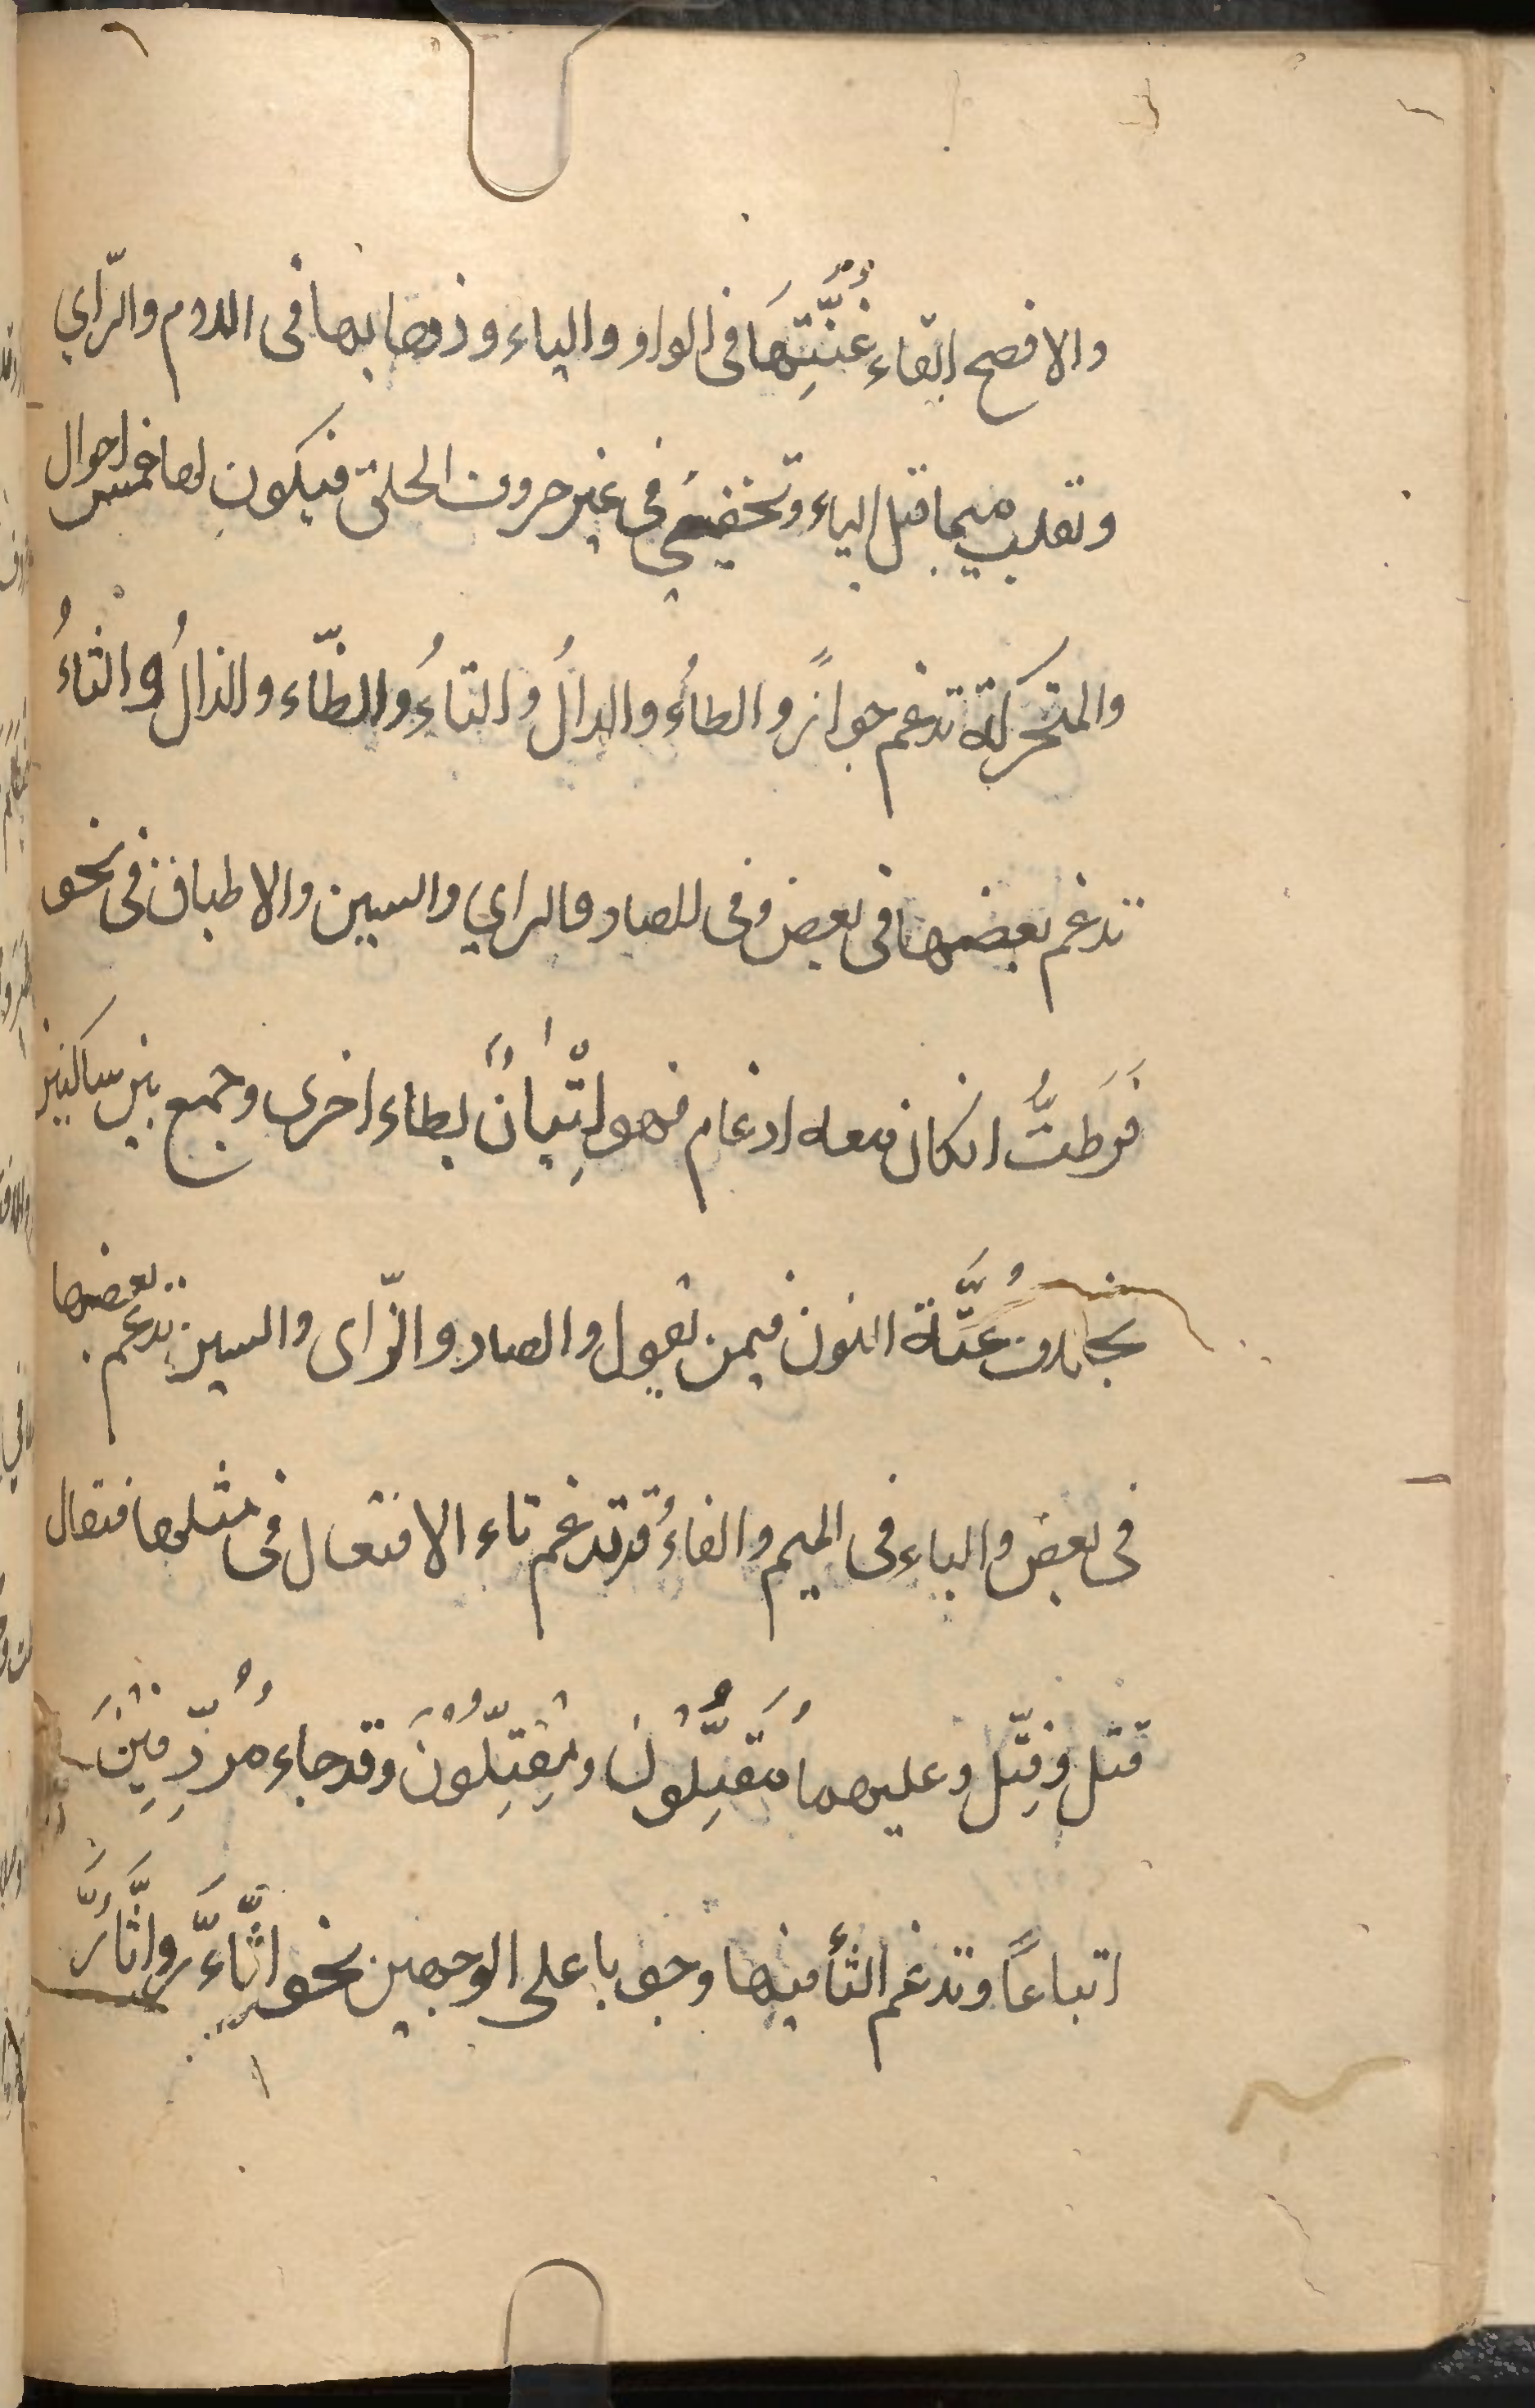 والافصح ابقاء غُنَّتِهَا فى الواو والياء وذهابها فى اللام والرّاي
وتقلب ميما قبل الياء وتخفى فى غير حروف الحلق فيكون لها خمس احوال
والمتحركة تدغم جوازًا والطاءُ والدالُ والتاءُ والظّاء والذالُ والثاءُ
تدغم بعضها فى بعض وفى للصاد والزاي والسين والاطباق فى نحو
فَرَطتُّ انكان معه ادغام فهو اتِّيانٌ بطاء اخرى وجمع بين ساكنين
بخلاف غنَّة النون فيمن يقول والصاد والزّاى والسين تدغم بعضها
فى بعض والباء فى الميم والفاءُ قد تدغم تاء الافتعال فى مثلها فتقال
قتل وقِتّل وعليهما مُقَتِّلُونَ ومُقِتِّلُوْنَ وقد جاء مُرُدِّفِيْنَ
اتباعًا وتدغم الثأ فيها وجوبا على الوجهين نحو اتَّاءَّر واثَّأَرَّ